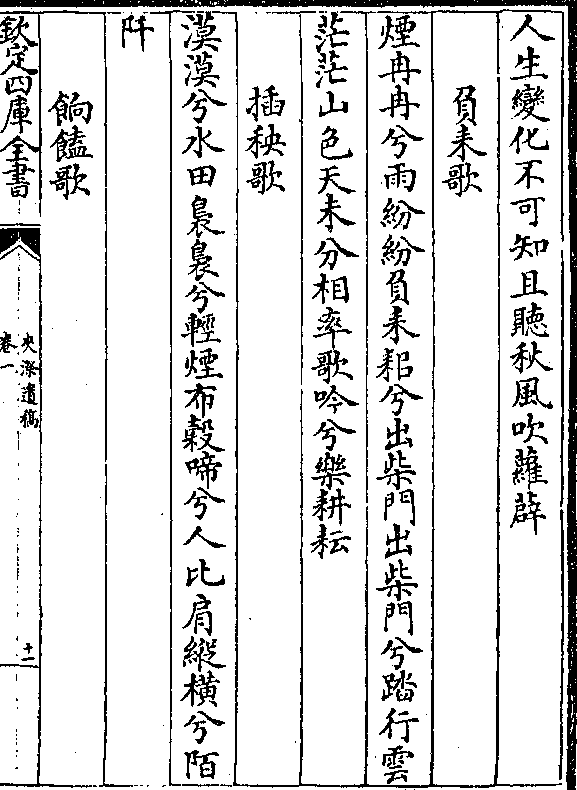 人生變化不可知且聽秋風吹蘿薜
負耒歌
煙冉冉兮雨紛紛負耒耜兮出柴門出柴門兮踏行雲
茫茫山色天未分相率歌吟兮樂耕耘
插秧歌
漠漠兮水田裊裊兮輕煙布穀啼兮人比肩縱橫兮陌
阡
餉饁歌
欽定四庫全書
夾漈遺稿
卷一
十一